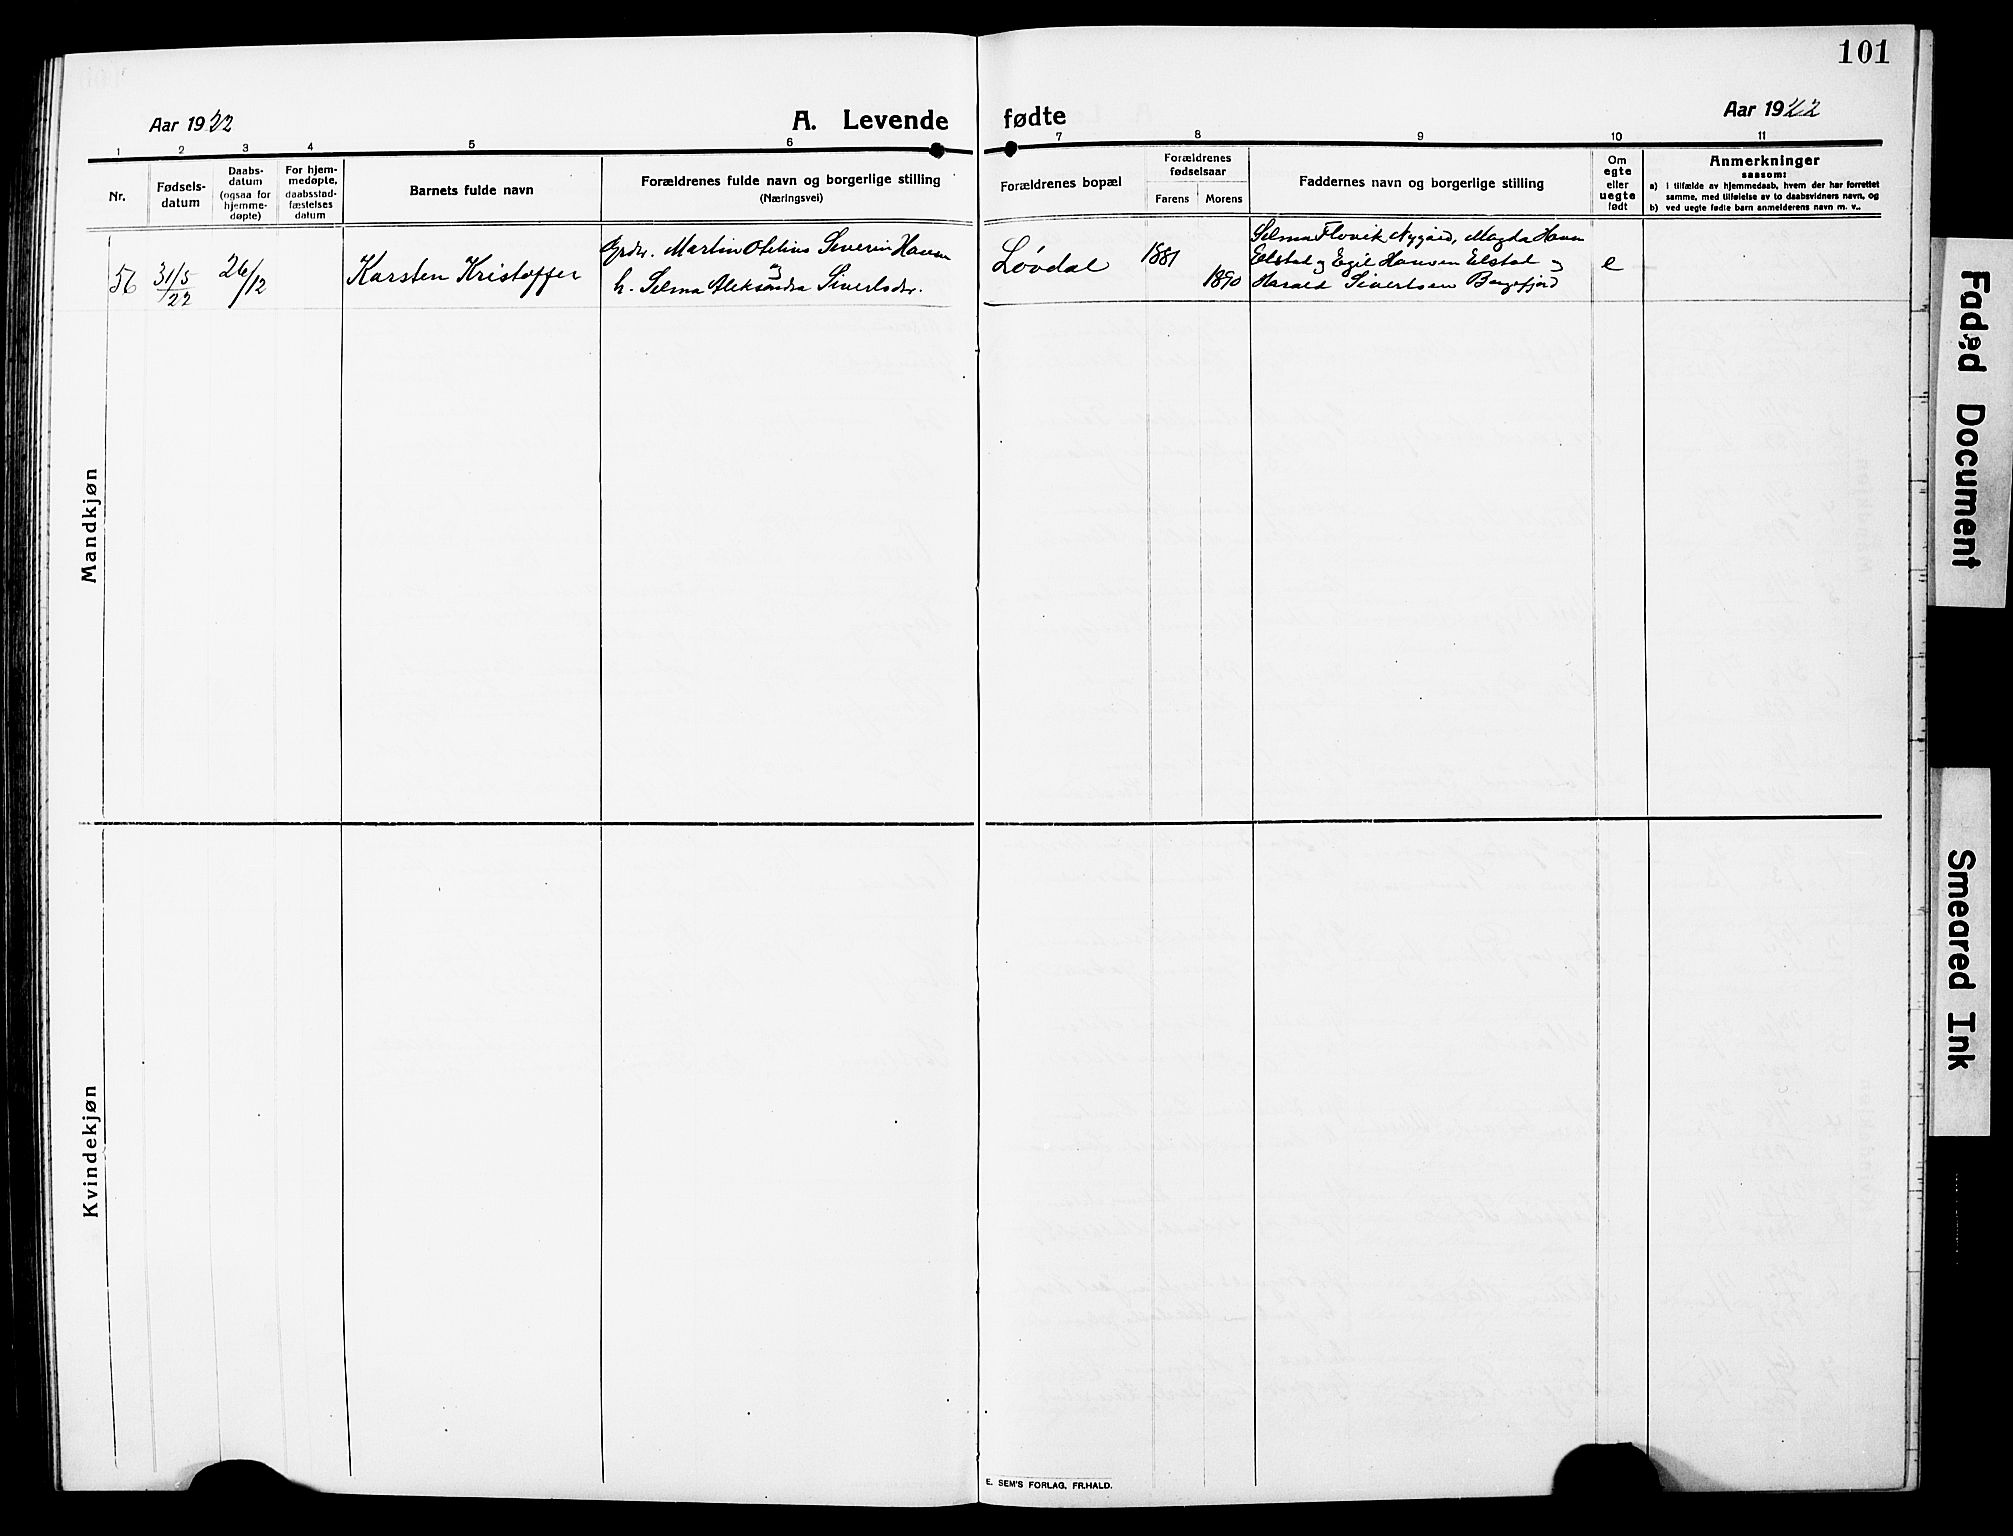 101
Aar 1922
A. Levende fødte
Aar 1922
1 2 3 4 5 6 7 8 9 10 11
Nr.
Fødsels-
datum
Daabs-
datum
(ogsaa for
hjemme-
døpte)
For hjem-
medøpte,
daabsstad-
fæstelses
datum
Barnets fulde navn
Forældrenes fulde navn og borgerlige stilling
(Næringsvei)
Forældrenes bopæl
Forældrenes
fødselsaar
Farens Morens
Faddernes navn og borgerlige stilling
Om
egte
eller
uegte
født
Anmerkninger
saasom:
a) i tilfælde av hjemmedaab, hvem der har forrettet
samme, med tilføielse av to daabsvidners navn, og
b) ved uegte fødte barn anmelderens navn m. v..
56
31/5
22
26/12
Karsten Kristoffer
Grdr. Martin Otelius Severin Hansen
og
h. Selma Aleksandra Sivertsdtr.
Løvdal
1881
1890
Selma Flovik Nygård, Magda Hansen
Elstad og Egil Hansen Elstad og
Harald Sivertsen Borgefjord
e
Mandkjøn
Kvindekjøn
E. SEM'S FORLAG, FR.HALD.
Faded Document
Smeared Ink